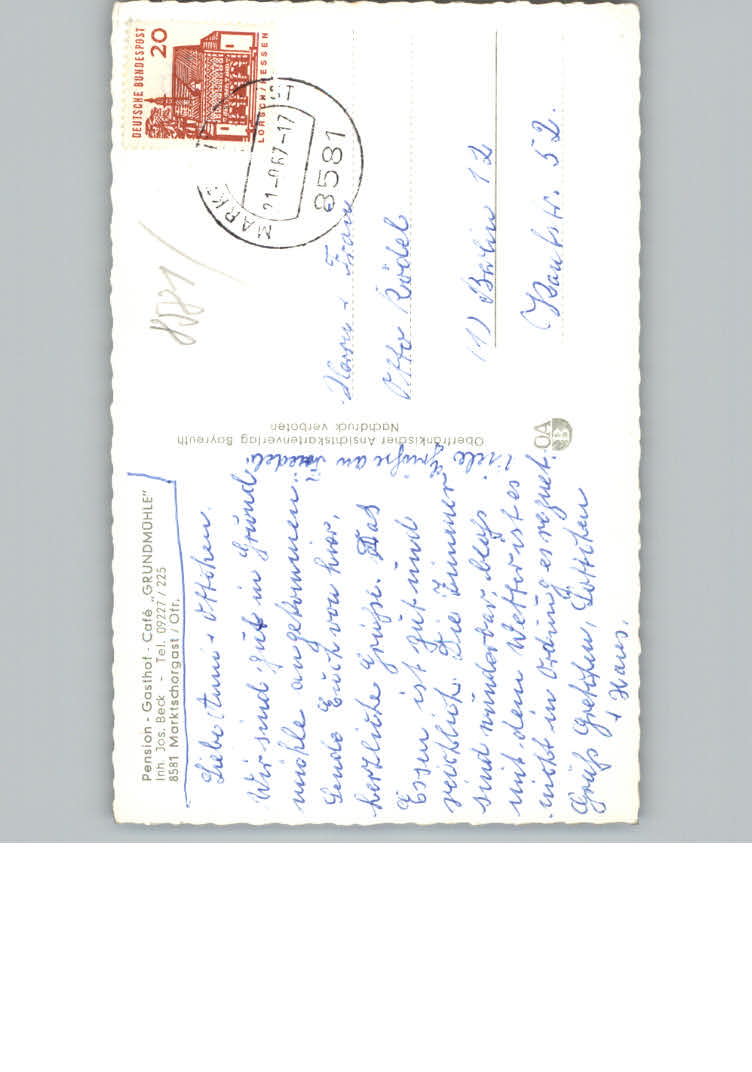 Pension - Gasthof - Café „GRUNDMÜHLE"
Inh. Jos. Beck - Tel. 09227 / 225
8581 Marktschorgast / Ofr.
Liebe Anni + Ottchen.
Wir sind gut in Grund
mühle angekommen.
Sende Euch von hier,
herzliche Grüße. Das
Essen ist gut und
reichlich. Die Zimmer
sind wunderbar, bloß
mit dem Wetter ist es
nicht in Ordnung es regnet.
Gruß Gretchen, Lottchen
+ Hans.
Viele Grüße an Friedel.
Oberfränkischer Ansichtskartenverlag Bayreuth
Nachdruck verboten
OA
B
DEUTSCHE BUNDESPOST
20
LORSCH/HESSEN
MARKT
ST
21-67-17
8581
Herrn + Frau
Otto Rödel
(1) Berlin 12
Pankstr. 52.